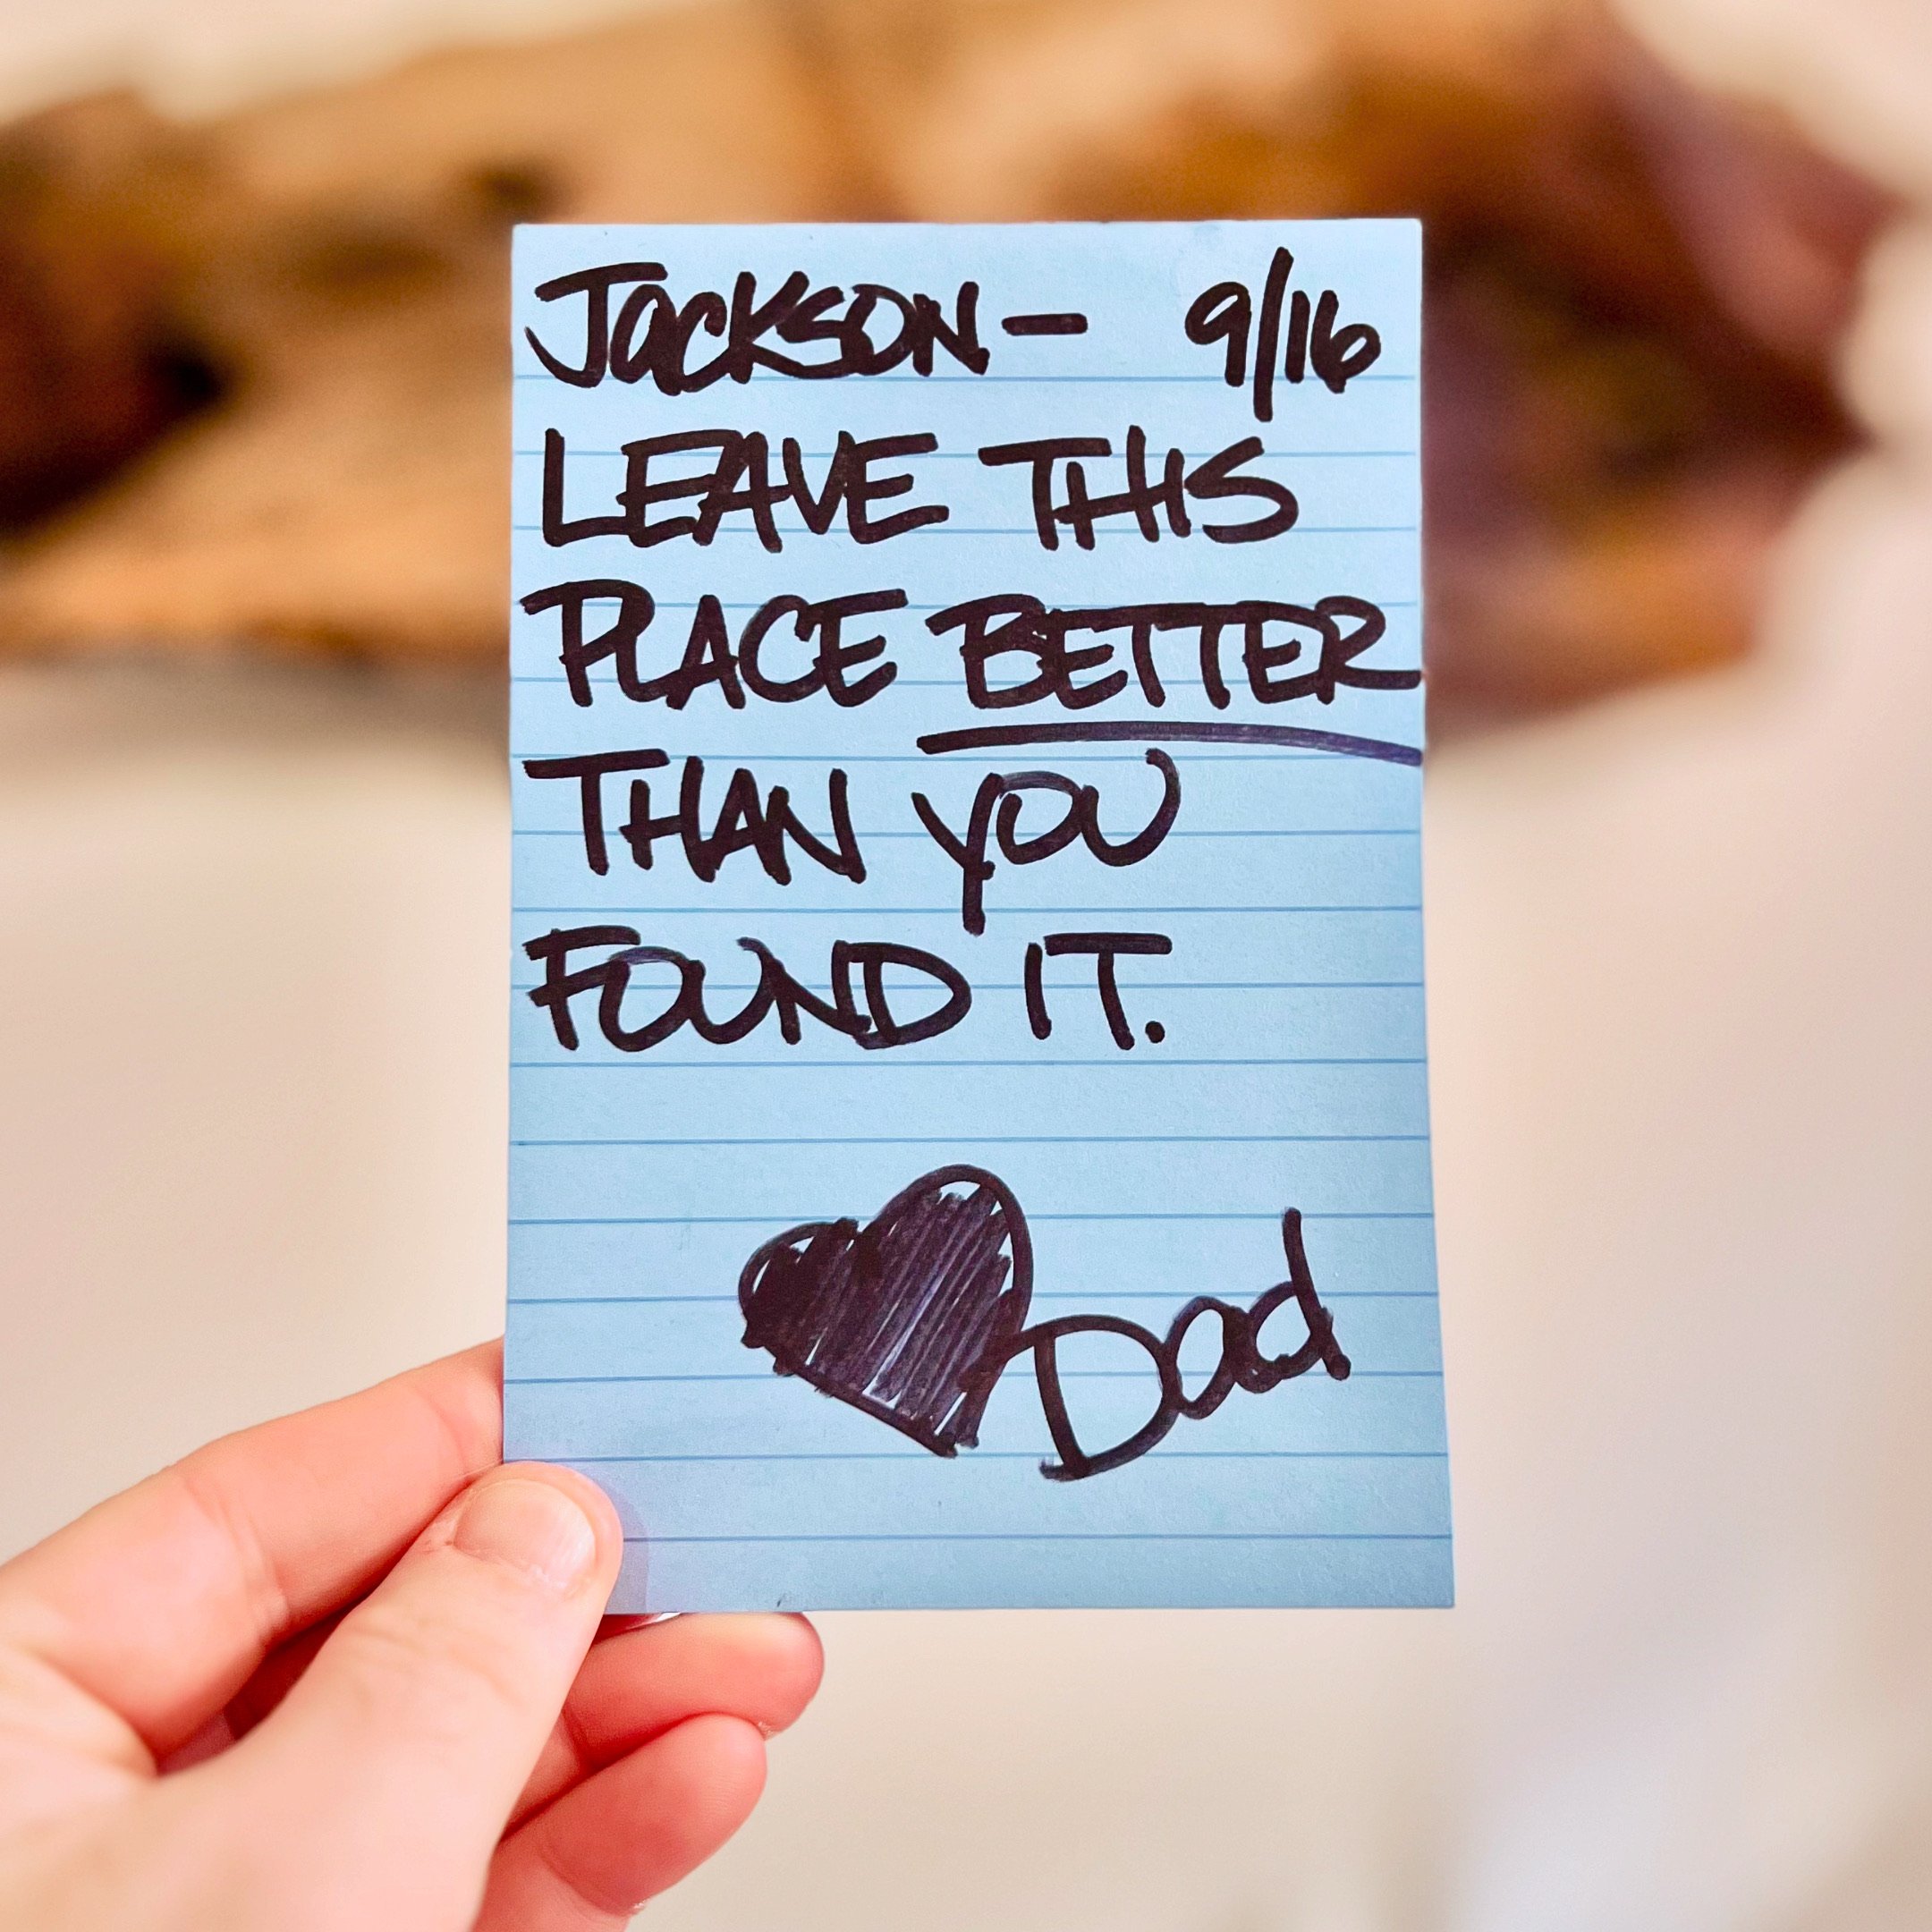 JACKSON — 9/16
LEAVE THIS
PLACE BETTER
THAN YOU
FOUND IT.
Dad